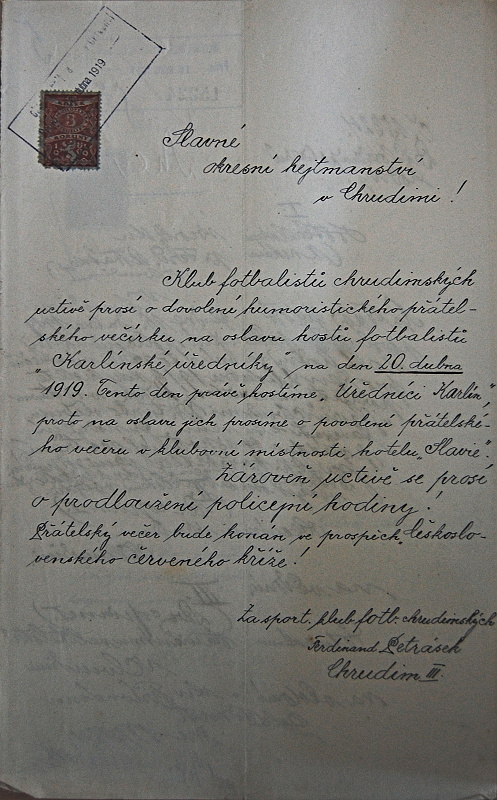 1919
3
Slavné
okresní hejtmanství
v Chrudimi!
Klub fotbalistů chrudimských
uctivě prosí o dovolení humoristického přátel-
ského večírku na oslavu hostů fotbalistů
„Karlínské úředníky" na den 20. dubna
1919. Tento den právě hostíme „Úředníci Karlín",
proto na oslavu jich prosíme o povolení přátelské-
ho večeru v klubovní místnosti hotelu „Slavie".
Zároveň uctivě se prosí
o prodloužení policejní hodiny!
Přátelský večer bude konán ve prospěch „Českoslo-
venského červeného kříže!
Za sport. klub fotb. chrudimských
Ferdinand Petrásek
Chrudim III.